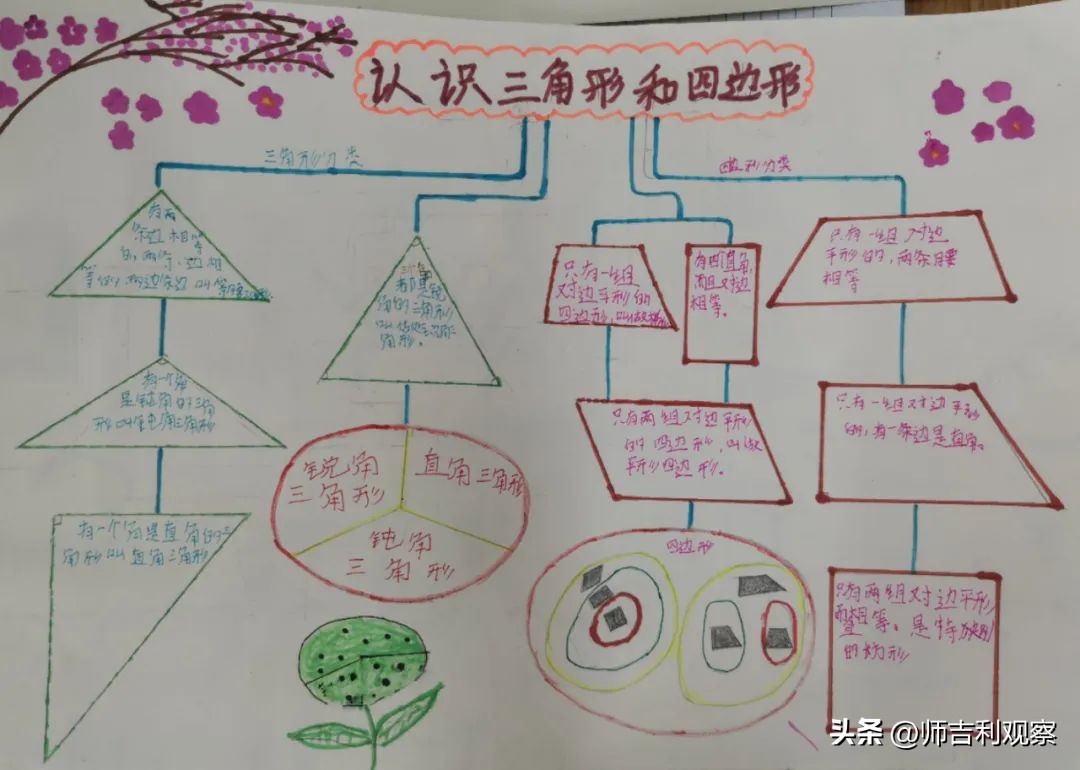 认识三角形和四边形
三角形分类
有两
条边相等
的,两条边相
等的
有一个角
是钝角的三角
形叫钝角三角形
有一个角是直角的三
角形叫直角三角形
三个角
都是锐
角的三角形
角形。
锐角
三角形
直角三角形
钝角
三角形
分类
只有一组
对边平形的
四边形,叫做
有四直角,
而且对边
相等。
只有两组对边平形
的四边形,叫做
平形四边形。
四边形
只有一组对边
平形的,两条腰
相等
只有一组对边平形
的,有一条边是直角。
只有两组对边平形
相等。是特别
的方形
头条 @师吉利观察